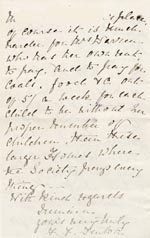 of course it is much
harder for
who has her own rent
to pay. And to pay for
Coals, food &c out
of 5/ a week, for each
child to be without her
proper number of
children, than these
larger Homes where
the Society pays every
thing
With kind regards
I remain
yours very truly